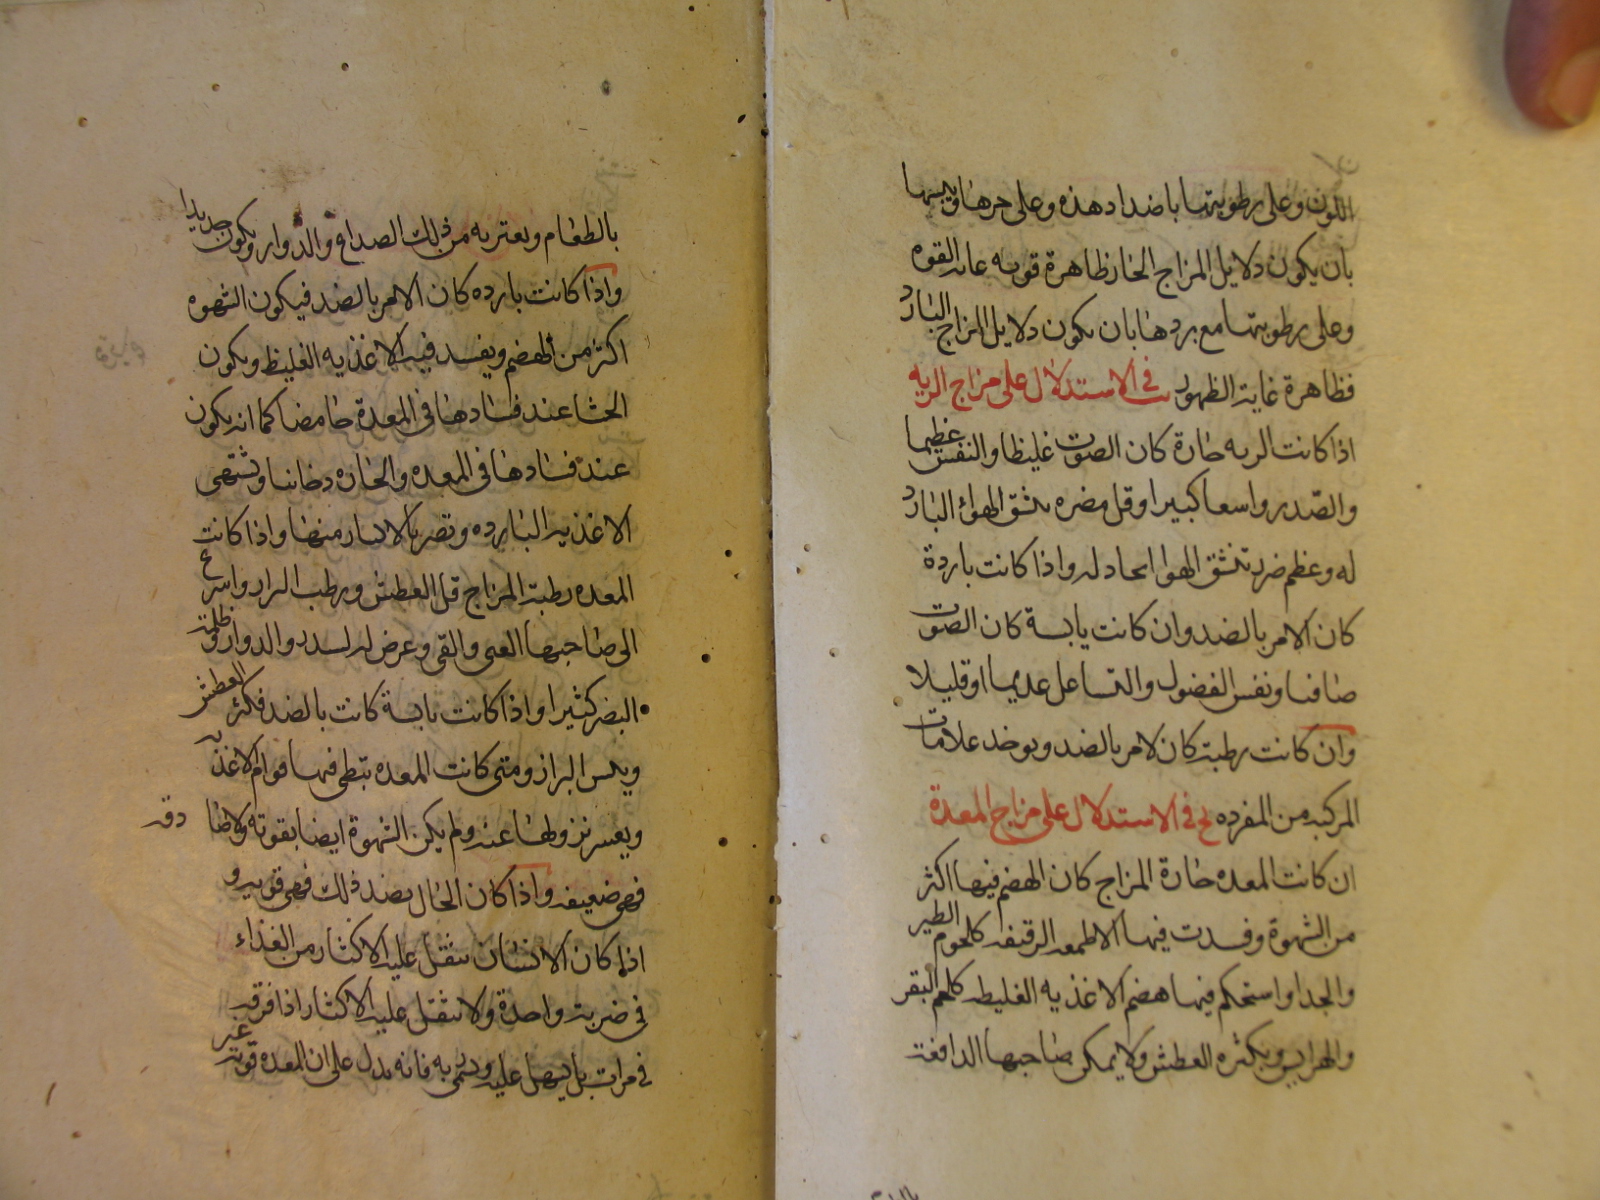 اللون وعلى رطوبتها باضداد هذه وعلى حرها ويبسها
بان يكون دلايل المزاج الحار ظاهرة قويه غاية القوه
وعلى رطوبتها مع بردها بان يكون دلايل المزاج البارد
فظاهرة غاية الظهور في الاستدلال على مزاج الريه
اذا كانت الريه حارة كان الصوت غليظا والنفس عظيما
والصدر واسعا كبيرا وقل مضره تنشق الهواء البارد
له وعظم ضرر تنشق الهوا الحاد له واذا كانت باردة
كان الامر بالضد وان كانت يابسة كان الصوت
صافيا ونفس الفضول والتساعل عديما او قليلا
وان كانت رطبة كان لامر بالضد ويوخد علامات
المركبه من المفرده في الاستدلال على مزاج المعدة
ان كانت المعده حارة المزاج كان الهضم فيها اكثر
من الشهوة وفسدت فيها الاطعمه الرقيقه كلحوم الطير
والجدا واستحكم فيها هضم الاغذيه الغليظه كلحم البقر
والهرايس ويكثره العطش ولا يمكن صاحبها المدافعة
بالطعام
بالطعام ويعتريه من ذلك الصداع والدوار ويكون جديدا
واذا كانت بارده كان الامر بالضد فيكون الشهوه
اكثر من الهضم ويفسد فيها الاغذيه الغليظ ويكون
الجشا عند فسادها في المعدة حامضا كما انه يكون
عند فسادها في المعده والحاره دخانيا ويشتهى
الاغذية البارده وتضر بالاكثار منها واذا كانت
المعده رطبة المزاج قل العطش ورطب البراز واسرع
الى صاحبها الغثى والقى وعرض له السدد والدوار وظلمة
البصر كثيرا واذا كانت يابسة كانت بالضد فكثر العطش
ويبس البراز ومتى كانت المعده تبطى فيها قوام الاغذيه
ويعسر نزولها عنه ولم يكن الشهوة ايضا بقوته ولا صا دقه
فهى ضعيفه واذا كان الحال بضد ذلك فهى قويه و
اذا كان الانسان يثقل عليه الاكثار من الغذاء
في ضربة واحدة ولا يثقل عليه الاكثار اذا فرقه
في مرات بل يسهل عليه ويستمرى به فانه يدل على ان المعده قوته غير